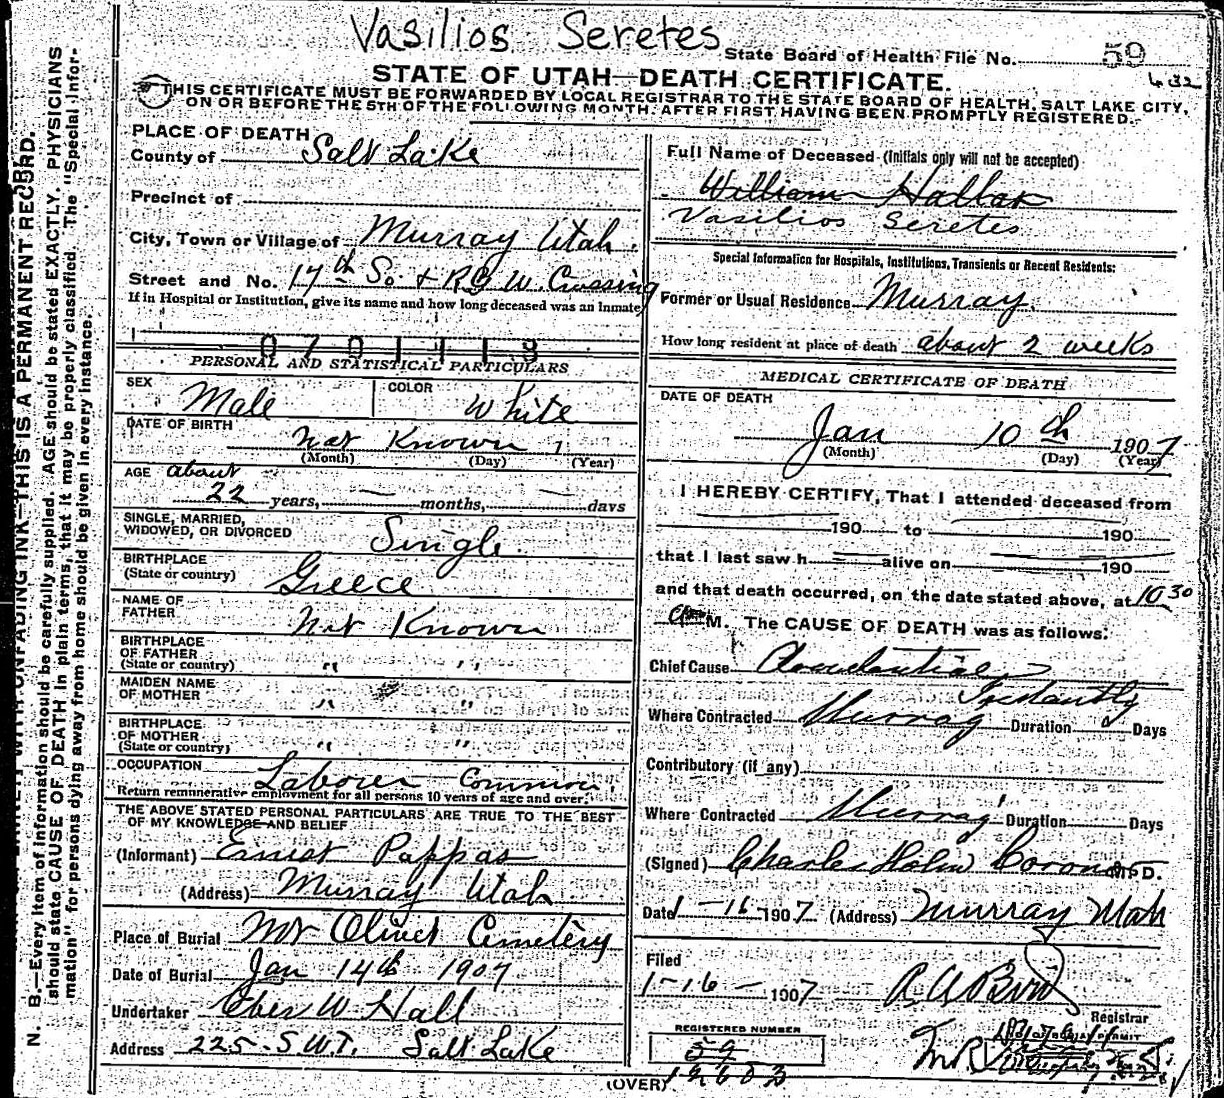 Vasilios Seretes
State Board of Health File No. 59
STATE OF UTAH—DEATH CERTIFICATE.
432
THIS CERTIFICATE MUST BE FORWARDED BY LOCAL REGISTRAR TO THE STATE BOARD OF HEALTH, SALT LAKE CITY,
ON OR BEFORE THE 5TH OF THE FOLLOWING MONTH, AFTER FIRST HAVING BEEN PROMPTLY REGISTERED.
N. B.—Every item of information should be carefully supplied. AGE should be stated EXACTLY. PHYSICIANS
should state CAUSE OF DEATH in plain terms, that it may be properly classified. The "Special Infor-
mation" for persons dying away from home should be given in every instance.
UNFADING INK—THIS IS A PERMANENT RECORD.
PLACE OF DEATH
County of Salt Lake
Precinct of
City, Town or Village of Murray Utah.
Street and No. 17th So & R.G.W. Crossing
If in Hospital or Institution, give its name and how long deceased was an inmate
0701418
PERSONAL AND STATISTICAL PARTICULARS
SEX Male COLOR White
DATE OF BIRTH Not Known 1
(Month) (Day) (Year)
AGE about
22 years, — months, — days
SINGLE, MARRIED,
WIDOWED, OR DIVORCED Single.
BIRTHPLACE
(State or country) Greece
NAME OF
FATHER Not Known
BIRTHPLACE
OF FATHER
(State or country) " "
MAIDEN NAME
OF MOTHER " "
BIRTHPLACE
OF MOTHER
(State or country) " "
OCCUPATION Laborer Common.
Return remunerative employment for all persons 10 years of age and over.
THE ABOVE STATED PERSONAL PARTICULARS ARE TRUE TO THE BEST
OF MY KNOWLEDGE AND BELIEF
(Informant) Ernest Pappas
(Address) Murray Utah
Place of Burial Mt Olivet Cemetery
Date of Burial Jan 14th 1907
Undertaker Eber W Hall
Address 225. S. W. T. Salt Lake
Full Name of Deceased (Initials only will not be accepted)
William Hallas
Vasilios Seretes
Special Information for Hospitals, Institutions, Transients or Recent Residents:
Former or Usual Residence Murray.
How long resident at place of death about 2 weeks
MEDICAL CERTIFICATE OF DEATH
DATE OF DEATH
Jan 10th 1907
(Month) (Day) (Year)
I HEREBY CERTIFY, That I attended deceased from
190 to 190
that I last saw h alive on 190
and that death occurred, on the date stated above, at 10 30
M. The CAUSE OF DEATH was as follows:
Chief Cause Accidential
Instantly
Where Contracted Murray Duration Days
Contributory (if any)
Where Contracted Murray Duration Days
(Signed) Charles Holm Coroner M. D.
Date 1-16-1907 (Address) Murray Utah
Filed
1-16-1907 R A Bird
Registrar
REGISTERED NUMBER
59
12603
(OVER)